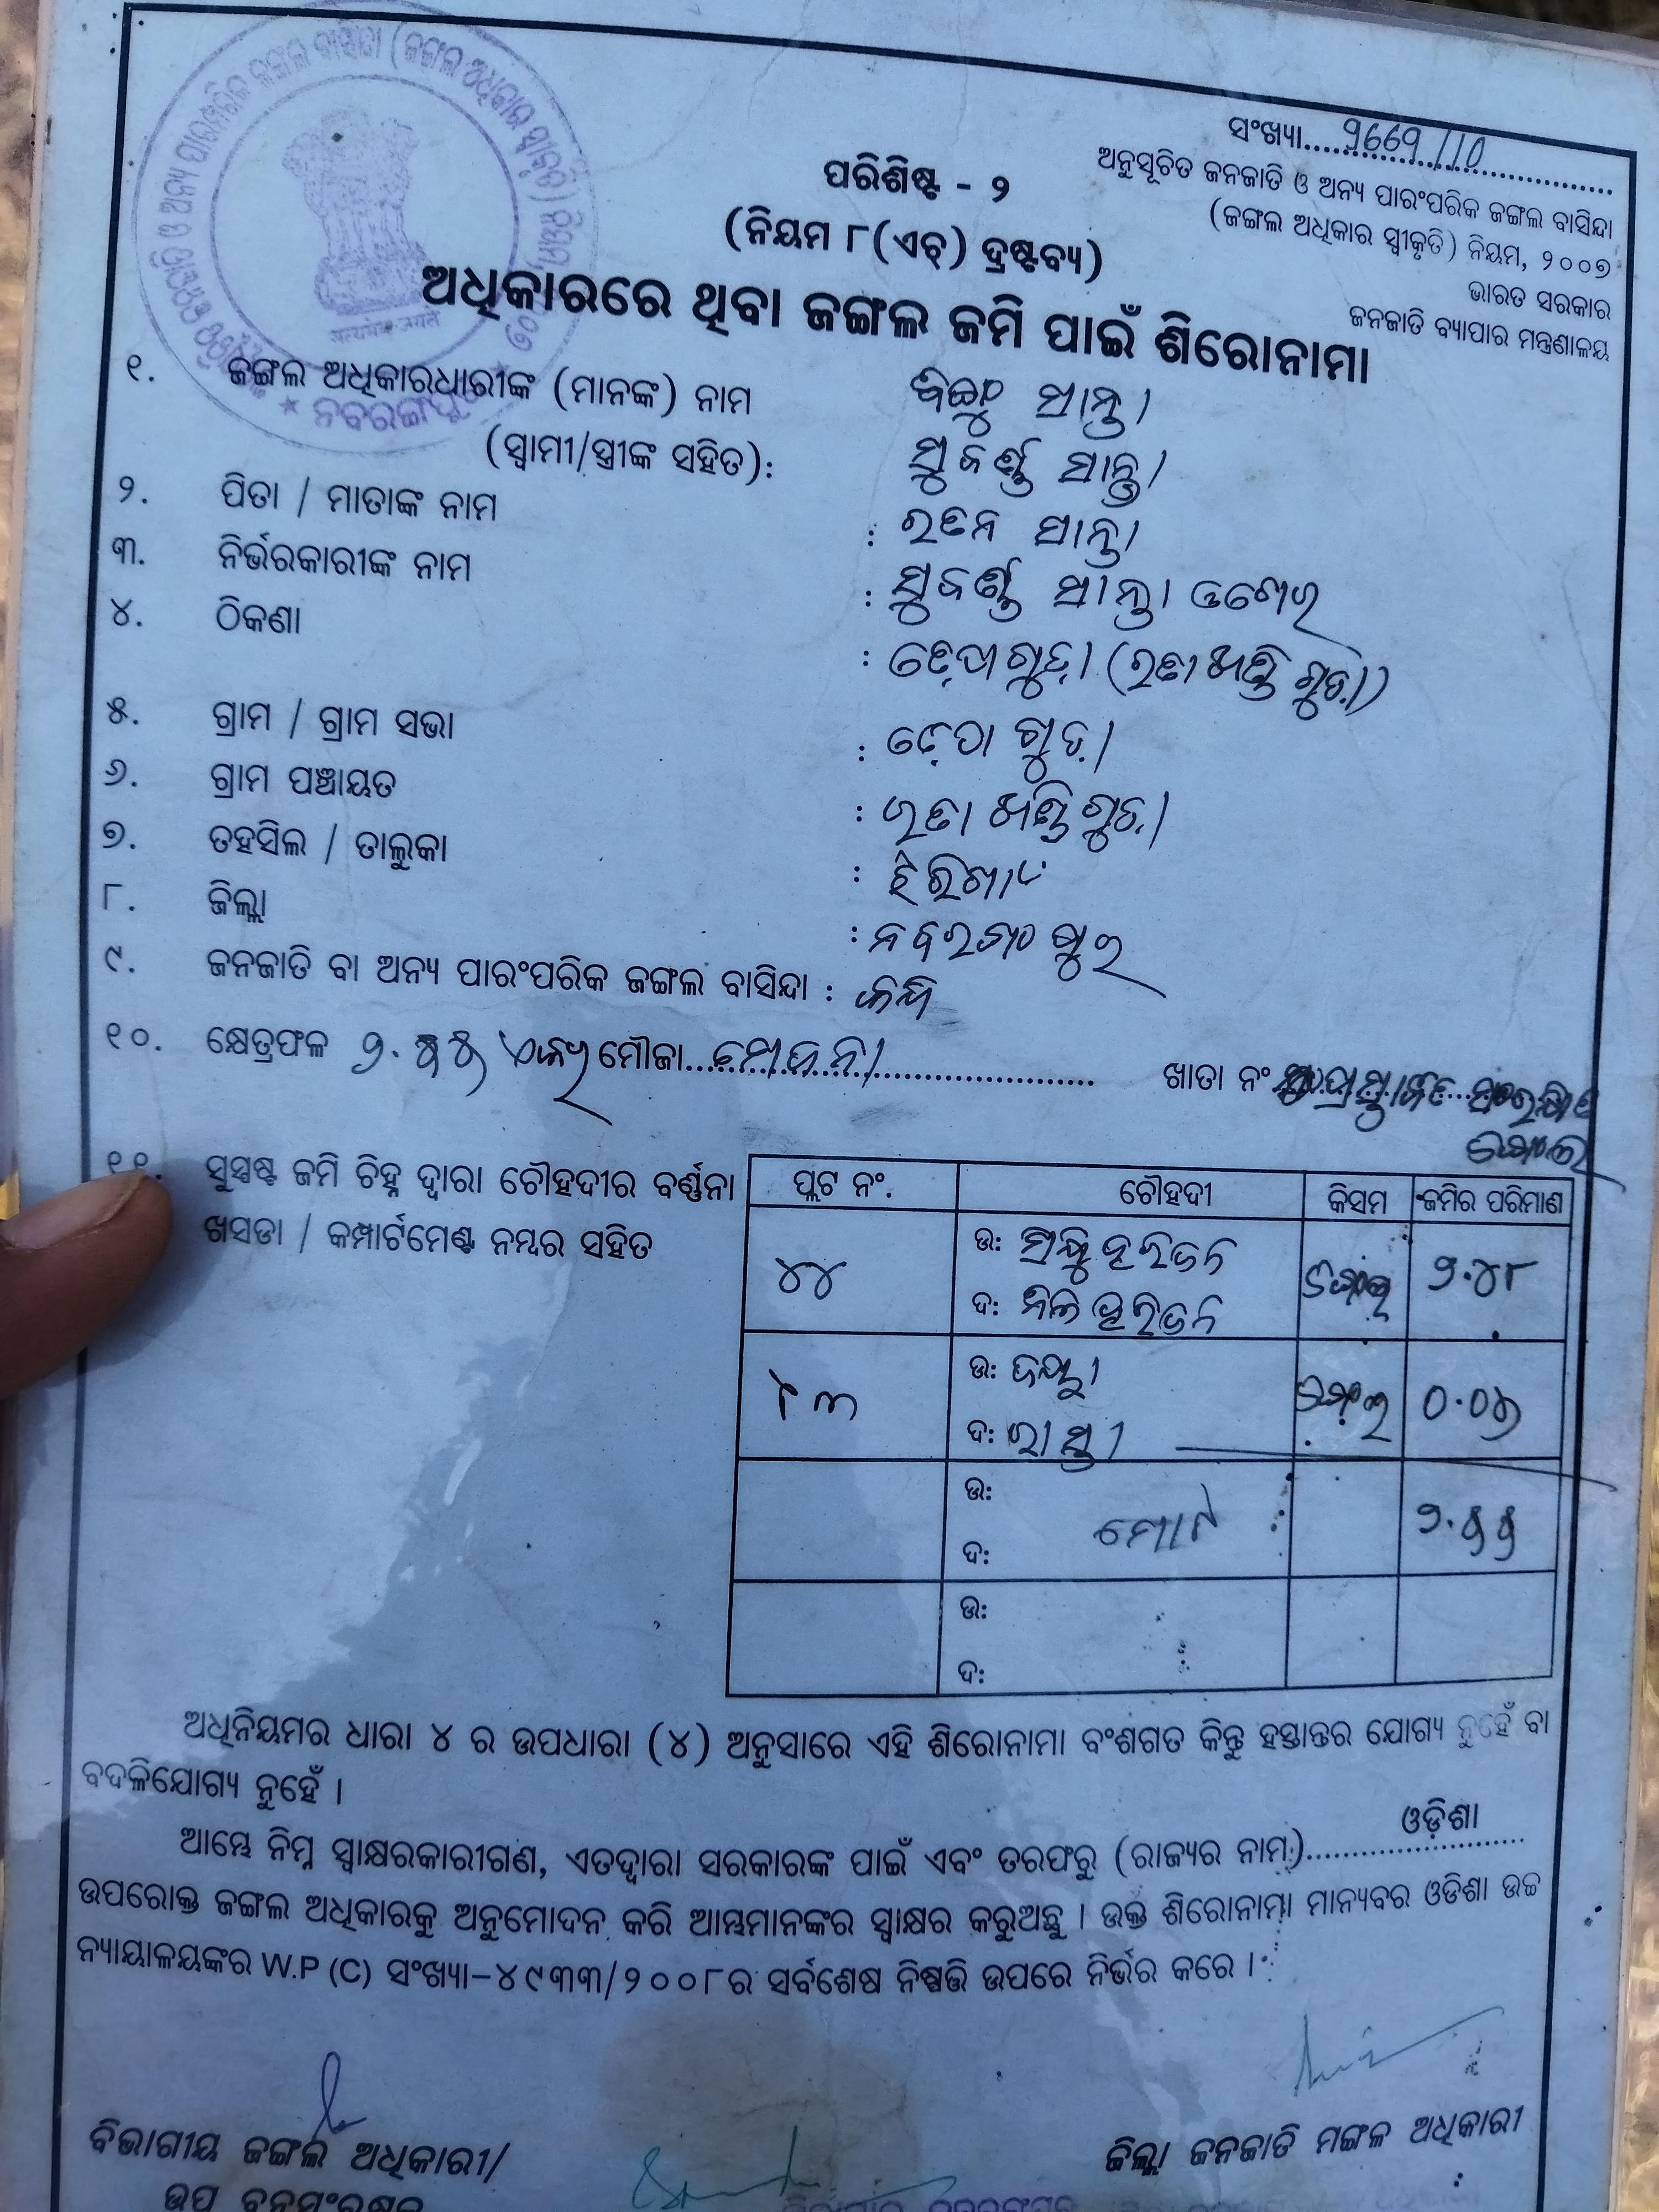 ସଂଖ୍ୟା.....୨୬୬୨/10
ଅନୁସୂଚିତ ଜନଜାତି ଓ ଅନ୍ୟ ପାରଂପରିକ ଜଙ୍ଗଲ ବାସିନ୍ଦା
(ଜଙ୍ଗଲ ଅଧିକାର ସ୍ୱୀକୃତି) ନିୟମ, ୨୦୦୭
ଭାରତ ସରକାର
ଜନଜାତି ବ୍ୟାପାର ମନ୍ତ୍ରଣାଳୟ
ପରିଶିଷ୍ଟ - ୨
(ନିୟମ ୮(ଏଚ୍) ଦ୍ରଷ୍ଟବ୍ୟ)
ଅଧିକାରରେ ଥିବା ଜଙ୍ଗଲ ଜମି ପାଇଁ ଶିରୋନାମା
୧. ଜଙ୍ଗଲ ଅଧିକାରଧାରୀଙ୍କ (ମାନଙ୍କ) ନାମ ସାନ୍ତା
(ସ୍ୱାମୀ/ସ୍ତ୍ରୀଙ୍କ ସହିତ): ସୁବର୍ଣ୍ଣ ସାନ୍ତା
୨. ପିତା / ମାତାଙ୍କ ନାମ : ରତନ ସାନ୍ତା
୩. ନିର୍ଭରକାରୀଙ୍କ ନାମ : ସୁବର୍ଣ୍ଣ ସାନ୍ତା
୪. ଠିକଣା : ଢ଼େପାଗୁଡ଼ା (ରତାଖଣ୍ଡିଗୁଡ଼ା)
୫. ଗ୍ରାମ / ଗ୍ରାମ ସଭା : ଢ଼େପାଗୁଡ଼ା
୬. ଗ୍ରାମ ପଞ୍ଚାୟତ : ରତାଖଣ୍ଡିଗୁଡ଼ା
୭. ତହସିଲ / ତାଲୁକା : ଝରିଗାଁ
୮. ଜିଲ୍ଲା : ନବରଙ୍ଗପୁର
୯. ଜନଜାତି ବା ଅନ୍ୟ ପାରଂପରିକ ଜଙ୍ଗଲ ବାସିନ୍ଦା : କନ୍ଧ
୧୦. କ୍ଷେତ୍ରଫଳ ୨.୫୫ ଏକର ମୌଜା..... ଖାତା ନଂ.
୧୧. ସୁସ୍ପଷ୍ଟ ଜମି ଚିହ୍ନ ଦ୍ୱାରା ଚୌହଦୀର ବର୍ଣ୍ଣନା
ଖସଡା / କମ୍ପାର୍ଟମେଣ୍ଟ ନମ୍ବର ସହିତ
ପ୍ଲଟ ନଂ. ଚୌହଦୀ କିସମ ଜମିର ପରିମାଣ
୪୪ ଉ: ହରିଜନ ଜଙ୍ଗଲ ୨.୪୮
ଦ: ହରିଜନ
୧୩ ଉ: ଜଙ୍ଗଲ
ଦ: ରାସ୍ତା
ଉ: ମୋଟ ୨.୫୫
ଦ:
ଉ:
ଦ:
ଅଧିନିୟମର ଧାରା ୪ ର ଉପଧାରା (୪) ଅନୁସାରେ ଏହି ଶିରୋନାମା ବଂଶଗତ କିନ୍ତୁ ହସ୍ତାନ୍ତର ଯୋଗ୍ୟ ନୁହେଁ ବା
ବଦଳିଯୋଗ୍ୟ ନୁହେଁ ।
ଆମ୍ଭେ ନିମ୍ନ ସ୍ୱାକ୍ଷରକାରୀଗଣ, ଏତଦ୍ୱାରା ସରକାରଙ୍କ ପାଇଁ ଏବଂ ତରଫରୁ (ରାଜ୍ୟର ନାମ).....ଓଡ଼ିଶା.....
ଉପରୋକ୍ତ ଜଙ୍ଗଲ ଅଧିକାରକୁ ଅନୁମୋଦନ କରି ଆମ୍ଭମାନଙ୍କର ସ୍ୱାକ୍ଷର କରୁଅଛୁ । ଉକ୍ତ ଶିରୋନାମା ମାନ୍ୟବର ଓଡିଶା ଉଚ୍ଚ
ନ୍ୟାୟାଳୟଙ୍କର W.P (C) ସଂଖ୍ୟା-୪୯୩୩/୨୦୦୮ର ସର୍ବଶେଷ ନିଷ୍ପତ୍ତି ଉପରେ ନିର୍ଭର କରେ ।
ବିଭାଗୀୟ ଜଙ୍ଗଲ ଅଧିକାରୀ/
ଉପ ବନସଂରକ୍ଷକ
ଜିଲ୍ଲା ଜନଜାତି ମଙ୍ଗଳ ଅଧିକାରୀ